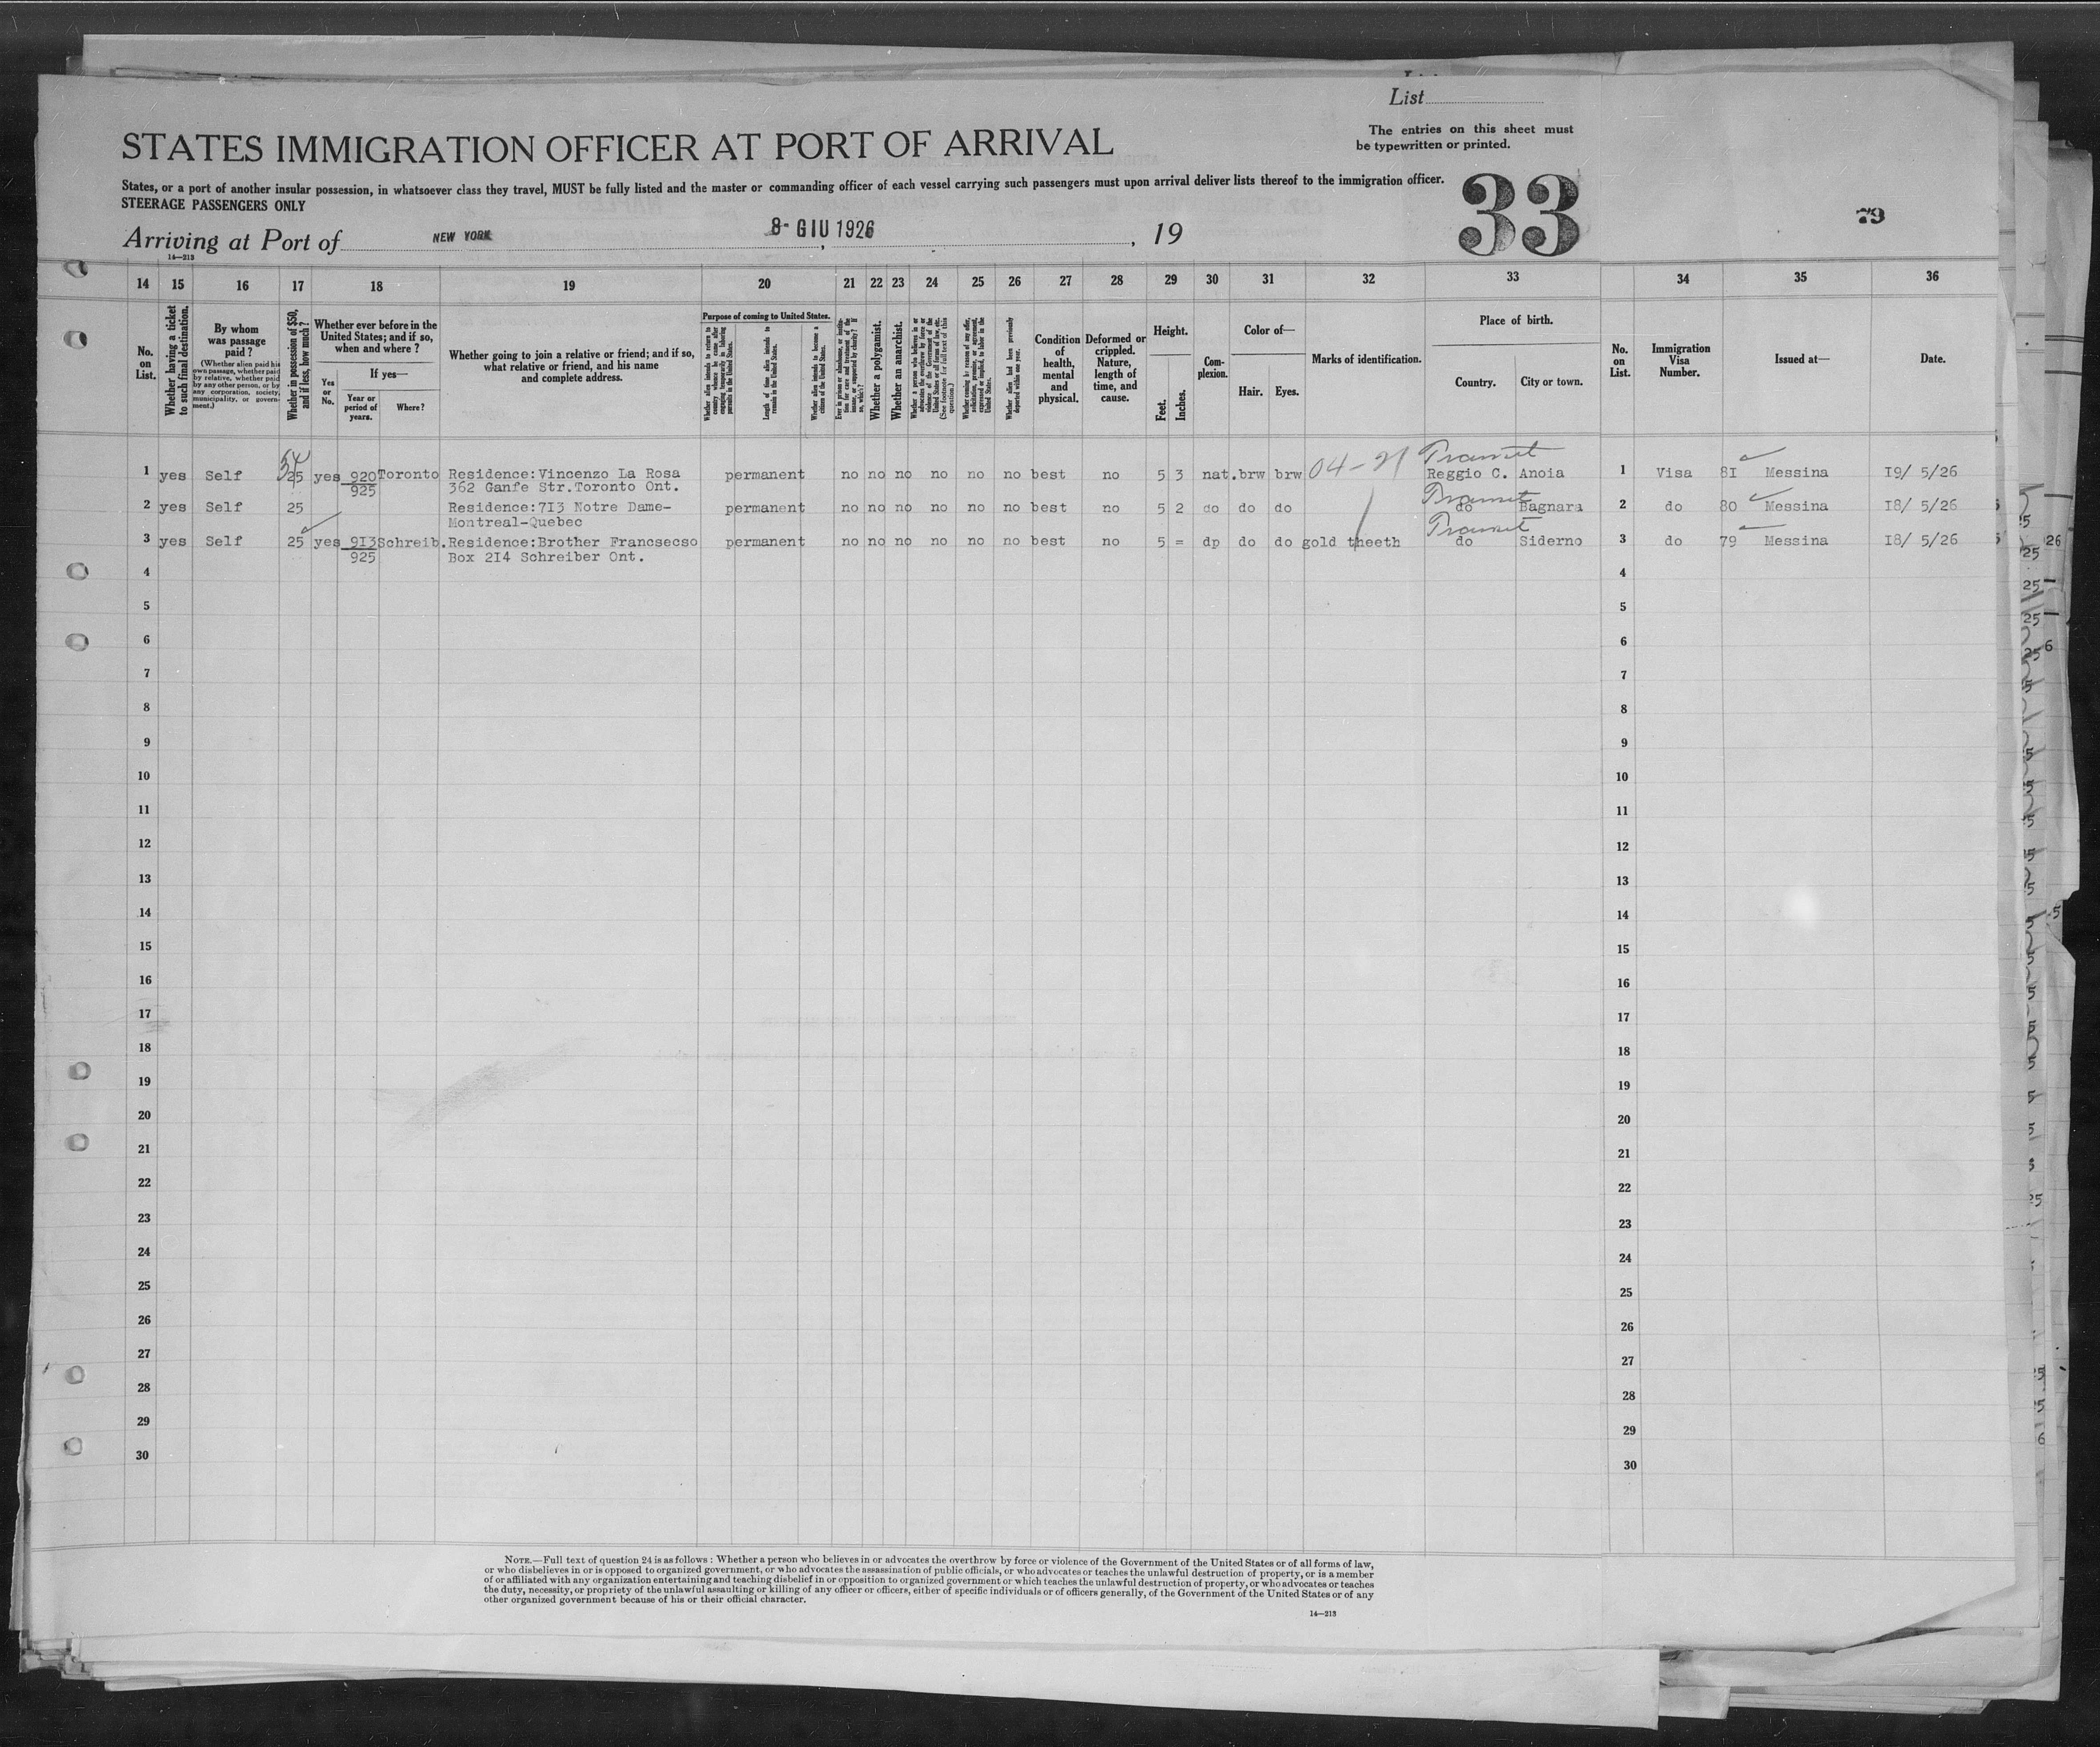 List
The entries on this sheet must
be typewritten or printed.
STATES IMMIGRATION OFFICER AT PORT OF ARRIVAL
States, or a port of another insular possession, in whatsoever class they travel, MUST be fully listed and the master or commanding officer of each vessel carrying such passengers must upon arrival deliver lists thereof to the immigration officer.
STEERAGE PASSENGERS ONLY
33
79
Arriving at Port of NEW YORK, 8- GIU 1926, 19
14—213
14 15 16 17 18 19 20 21 22 23 24 25 26 27 28 29 30 31 32 33 34 35 36
No. on List.
Whether having a ticket to such final destination.
By whom was passage paid?
(Whether alien paid his own passage, whether paid by relative, whether paid by any other person, or by any corporation, society, municipality, or government.)
Whether in possession of $50, and if less, how much?
Whether ever before in the United States; and if so, when and where?
Yes or No.
If yes—
Year or period of years.
Where?
Whether going to join a relative or friend; and if so, what relative or friend, and his name and complete address.
Purpose of coming to United States.
Whether alien intends to return to country whence he came after engaging temporarily in laboring pursuits in the United States.
Length of time alien intends to remain in the United States.
Whether alien intends to become a citizen of the United States.
Ever in prison or almshouse, or institution for care and treatment of the insane, or supported by charity? If so, which?
Whether a polygamist.
Whether an anarchist.
Whether a person who believes in or advocates the overthrow by force or violence of the Government of the United States or all forms of law, etc. (See footnote for full text of this question.)
Whether coming by reason of any offer, solicitation, promise, or agreement, expressed or implied, to labor in the United States.
Whether alien had been previously deported within one year.
Condition of health, mental and physical.
Deformed or crippled. Nature, length of time, and cause.
Height.
Feet.
Inches.
Complexion.
Color of—
Hair.
Eyes.
Marks of identification.
Place of birth.
Country.
City or town.
No. on List.
Immigration Visa Number.
Issued at—
Date.
04-21
Transit
1 yes Self 25 yes 920 Toronto Residence:Vincenzo La Rosa permanent no no no no no no best no 5 3 nat. brw brw Reggio C. Anoia 1 Visa 8I Messina I9/ 5/26
925 362 Ganfe Str.Toronto Ont.
Transit
2 yes Self 25 Residence:7I3 Notre Dame- permanent no no no no no no best no 5 2 do do do do Bagnara 2 do 80 Messina I8/ 5/26
Montreal-Quebec
Transit
3 yes Self 25 yes 9I3 Schreib. Residence:Brother Francsecso permanent no no no no no no best no 5 = dp do do gold theeth do Siderno 3 do 79 Messina I8/ 5/26
925 Box 2I4 Schreiber Ont.
4 4
5 5
6 6
7 7
8 8
9 9
10 10
11 11
12 12
13 13
14 14
15 15
16 16
17 17
18 18
19 19
20 20
21 21
22 22
23 23
24 24
25 25
26 26
27 27
28 28
29 29
30 30
NOTE.—Full text of question 24 is as follows: Whether a person who believes in or advocates the overthrow by force or violence of the Government of the United States or of all forms of law,
or who disbelieves in or is opposed to organized government, or who advocates the assassination of public officials, or who advocates or teaches the unlawful destruction of property, or is a member
of or affiliated with any organization entertaining and teaching disbelief in or opposition to organized government or which teaches the unlawful destruction of property, or who advocates or teaches
the duty, necessity, or propriety of the unlawful assaulting or killing of any officer or officers, either of specific individuals or of officers generally, of the Government of the United States or of any
other organized government because of his or their official character.
14—213